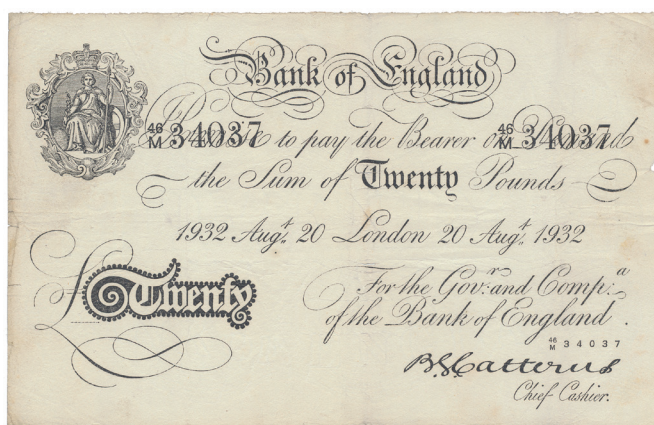 Bank of England
46/M 34037 Promise to pay the Bearer on Demand 46/M 34037
the Sum of Twenty Pounds
1932 Augt. 20 London 20 Augt. 1932
For the Govr. and Compa.
of the Bank of England.
£Twenty
46/M 34037
B G Catterns
Chief Cashier.